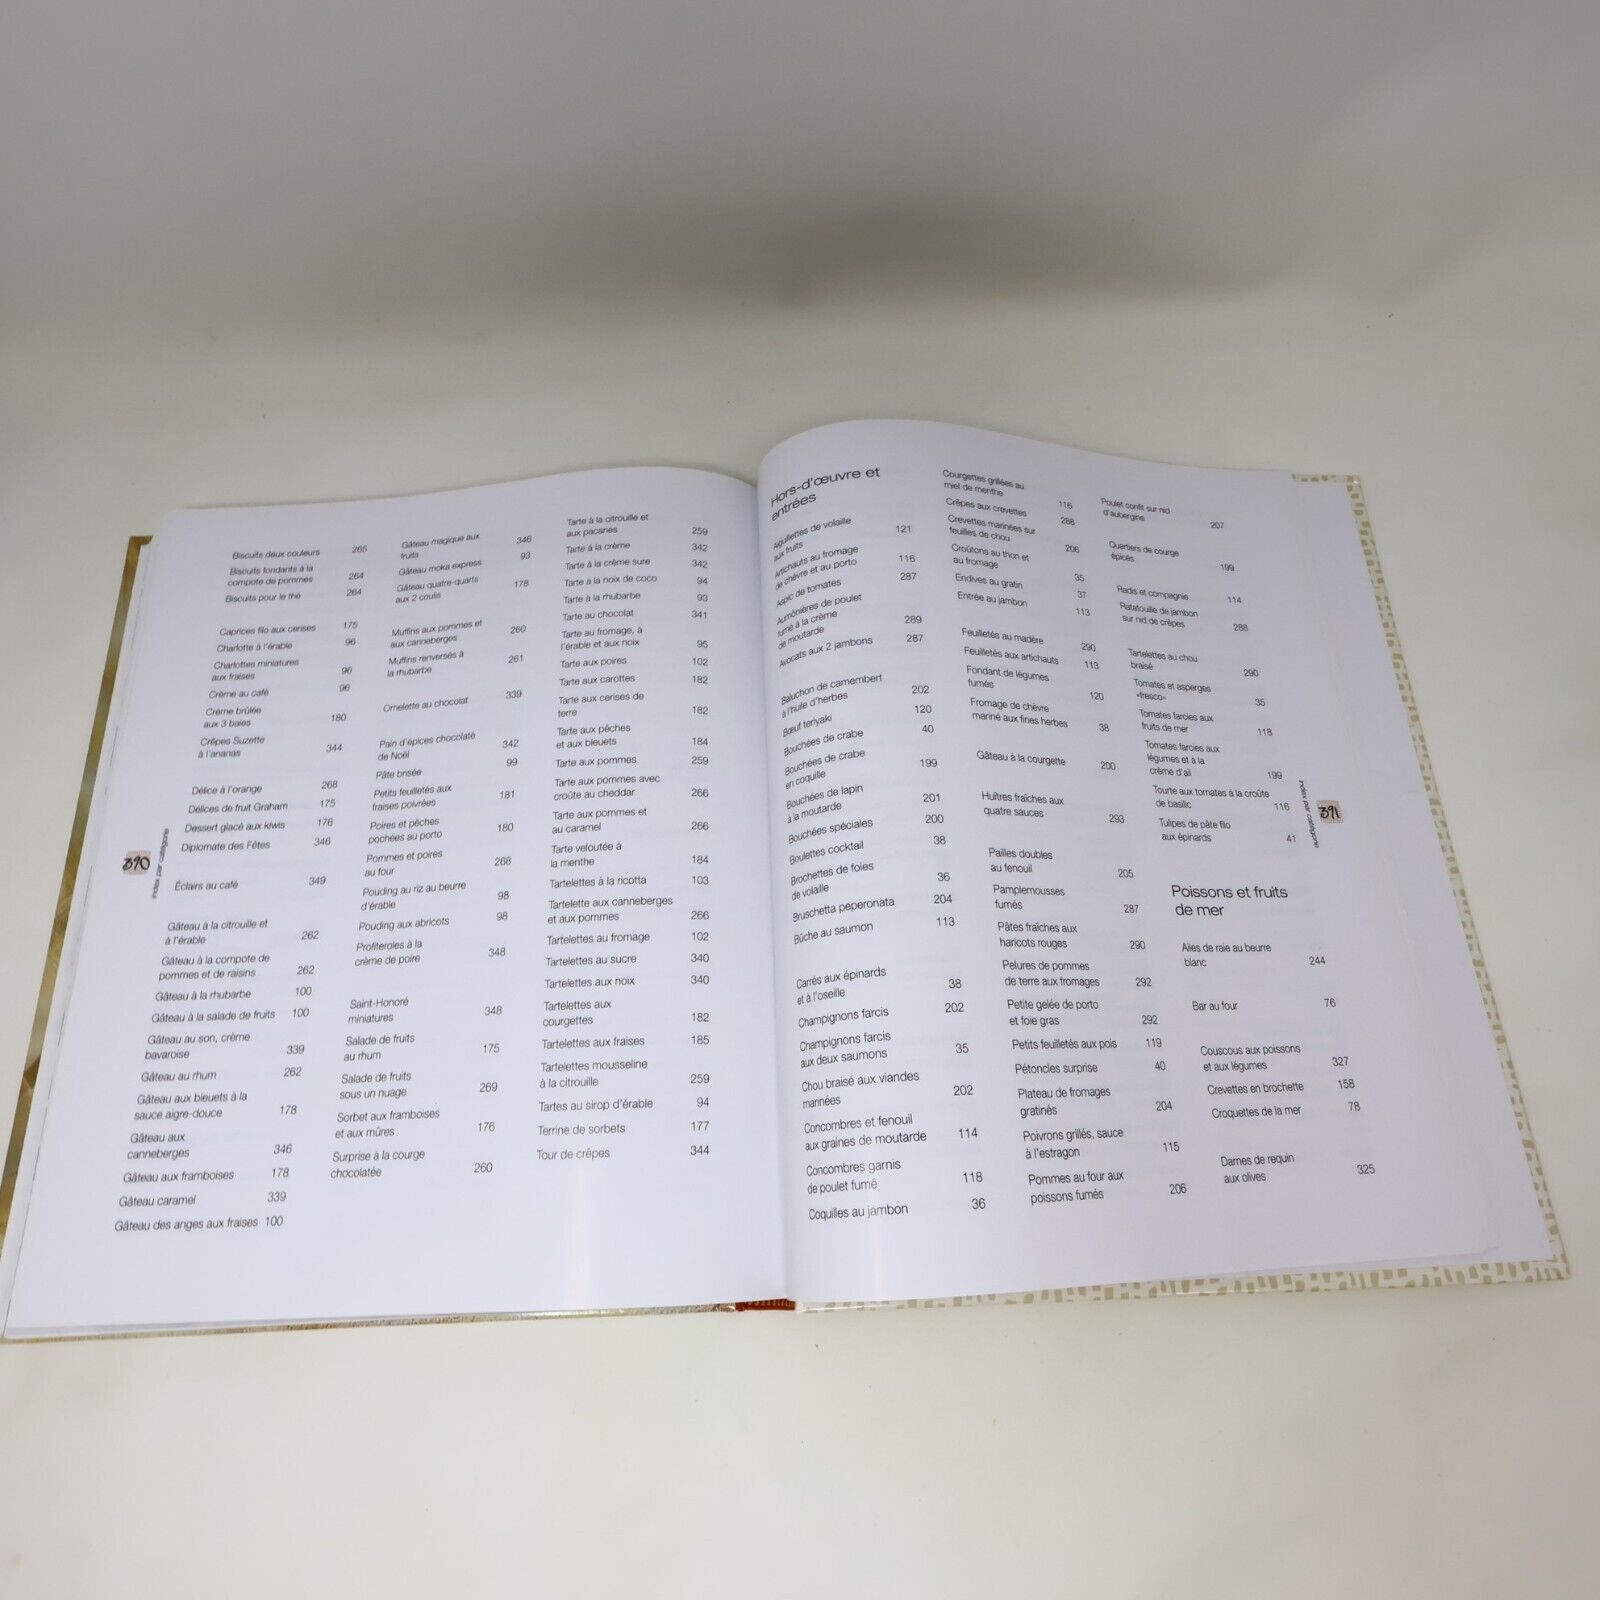 Biscuits deux couleurs 265
Biscuits fondants à la
compote de pommes 264
Biscuits pour le thé 264
Caprices filo aux cerises 175
Charlotte à l'érable 96
Charlottes miniatures
aux fraises 96
Crème au café 96
Crème brûlée
aux 3 baies 180
Crêpes Suzette
à l'ananas 344
Délice à l'orange 268
Délices de fruit Graham 175
Dessert glacé aux kiwis 176
Diplomate des Fêtes 346
Éclairs au café 349
Gâteau à la citrouille et
à l'érable 262
Gâteau à la compote de
pommes et de raisins 262
Gâteau à la rhubarbe 100
Gâteau à la salade de fruits 100
Gâteau au son, crème
bavaroise 339
Gâteau au rhum 262
Gâteau aux bleuets à la
sauce aigre-douce 178
Gâteau aux
canneberges 346
Gâteau aux framboises 178
Gâteau caramel 339
Gâteau des anges aux fraises 100
390
index par catégorie
Gâteau magique aux
fruits 346
Gâteau moka express 93
Gâteau quatre-quarts
aux 2 coulis 178
Muffins aux pommes et
aux canneberges 260
Muffins renversés à
la rhubarbe 261
Omelette au chocolat 339
Pain d'épices chocolaté
de Noël 342
Pâte brisée 99
Petits feuilletés aux
fraises poivrées 181
Poires et pêches
pochées au porto 180
Pommes et poires
au four 268
Pouding au riz au beurre
d'érable 98
Pouding aux abricots 98
Profiteroles à la
crème de poire 348
Saint-Honoré
miniatures 348
Salade de fruits
au rhum 175
Salade de fruits
sous un nuage 269
Sorbet aux framboises
et aux mûres 176
Surprise à la courge
chocolatée 260
Tarte à la citrouille et
aux pacanes 259
Tarte à la crème 342
Tarte à la crème sure 342
Tarte à la noix de coco 94
Tarte à la rhubarbe 93
Tarte au chocolat 341
Tarte au fromage, à
l'érable et aux noix 95
Tarte aux poires 102
Tarte aux carottes 182
Tarte aux cerises de
terre 182
Tarte aux pêches
et aux bleuets 184
Tarte aux pommes 259
Tarte aux pommes avec
croûte au cheddar 266
Tarte aux pommes et
au caramel 266
Tarte veloutée à
la menthe 184
Tartelettes à la ricotta 103
Tartelette aux canneberges
et aux pommes 266
Tartelettes au fromage 102
Tartelettes au sucre 340
Tartelettes aux noix 340
Tartelettes aux
courgettes 182
Tartelettes aux fraises 185
Tartelettes mousseline
à la citrouille 259
Tartes au sirop d'érable 94
Terrine de sorbets 177
Tour de crêpes 344
Hors-d'œuvre et
entrées
Aiguillettes de volaille
aux fruits 121
Artichauts au fromage
de chèvre et au porto 116
Aspic de tomates 287
Aumônières de poulet
fumé à la crème
de moutarde 289
Avocats aux 2 jambons 287
Baluchon de camembert
à l'huile d'herbes 202
Bœuf teriyaki 120
Bouchées de crabe 40
Bouchées de crabe
en coquille 199
Bouchées de lapin
à la moutarde 201
Bouchées spéciales 200
Boulettes cocktail 38
Brochettes de foies
de volaille 36
Bruschetta peperonata 204
Bûche au saumon 113
Carrés aux épinards
et à l'oseille 38
Champignons farcis 202
Champignons farcis
aux deux saumons 35
Chou braisé aux viandes
marinées 202
Concombres et fenouil
aux graines de moutarde 114
Concombres garnis
de poulet fumé 118
Coquilles au jambon 36
Courgettes grillées au
miel de menthe 116
Crêpes aux crevettes 288
Crevettes marinées sur
feuilles de chou 206
Croûtons au thon et
au fromage 35
Endives au gratin 37
Entrée au jambon 113
Feuilletés au madère 290
Feuilletés aux artichauts 113
Fondant de légumes
fumés 120
Fromage de chèvre
mariné aux fines herbes 38
Gâteau à la courgette 200
Huîtres fraîches aux
quatre sauces 293
Pailles doubles
au fenouil 205
Pamplemousses
fumés 287
Pâtes fraîches aux
haricots rouges 290
Pelures de pommes
de terre aux fromages 292
Petite gelée de porto
et foie gras 292
Petits feuilletés aux pois 119
Pétoncles surprise 40
Plateau de fromages
gratinés 204
Poivrons grillés, sauce
à l'estragon 115
Pommes au four aux
poissons fumés 206
Poulet confit sur nid
d'aubergine 207
Quartiers de courge
épicés 199
Radis et compagnie 114
Ratatouille de jambon
sur nid de crêpes 288
Tartelettes au chou
braisé 290
Tomates et asperges
«fresco» 35
Tomates farcies aux
fruits de mer 118
Tomates farcies aux
légumes et à la
crème d'ail 199
Tourte aux tomates à la croûte
de basilic 116
Tulipes de pâte filo
aux épinards 41
Poissons et fruits
de mer
Ailes de raie au beurre
blanc 244
Bar au four 76
Couscous aux poissons
et aux légumes 327
Crevettes en brochette 158
Croquettes de la mer 78
Darnes de requin
aux olives 325
index par catégorie
391